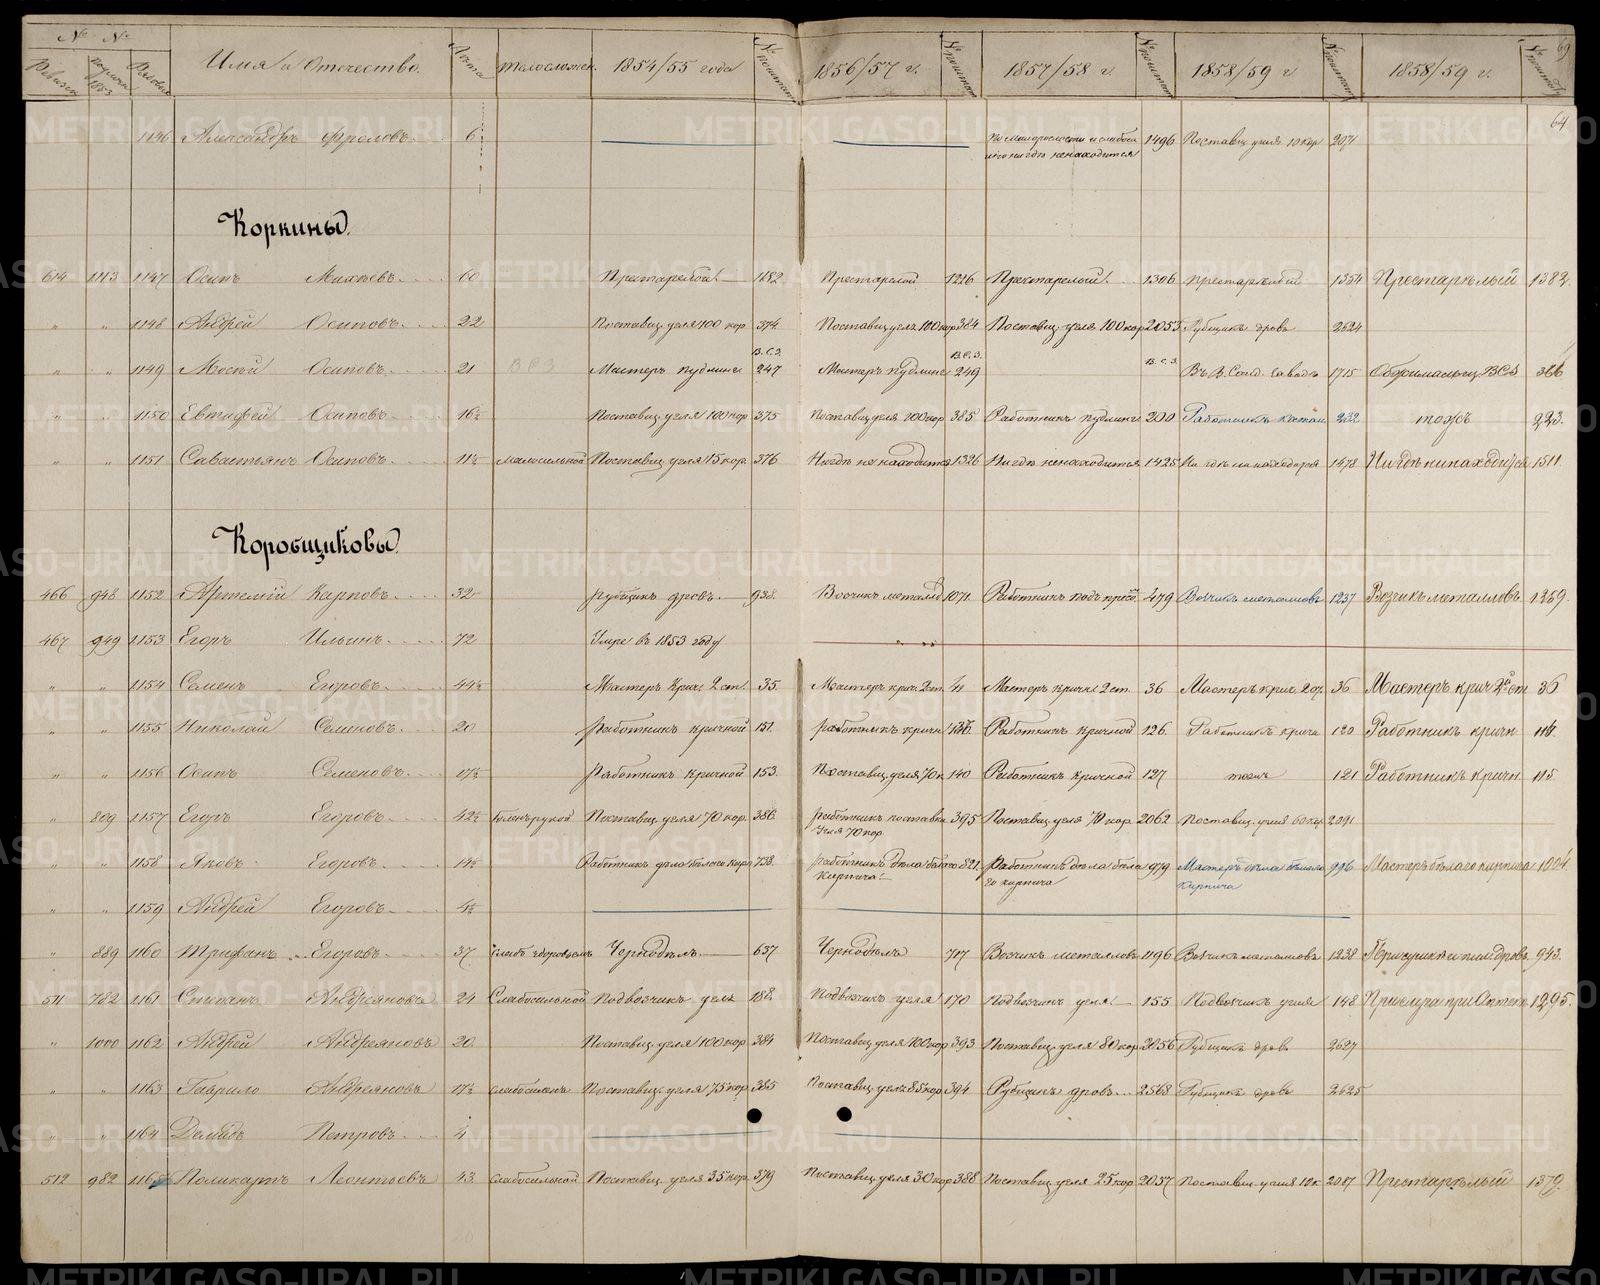 № № Имя и Отчество. Лѣта Тѣлосложен. 1854/55 года № по штат 1856/57 г. № по штат 1857/58 г. № по штат 1858/59 г № по штат 1858/59 г. № по штат 69
64
1146 Александръ Фроловъ. 6 1496 Поставщ. угля 10 кор 2071
Коркины.
614 1113 1147 Осипъ Михѣевъ. 60 Престарелой 1182 Престарелой 1226 Престарелой. 1306 Престарелый 1354 Престарѣлый 1382.
" " 1148 Андрей Осиповъ. 22 Поставщ. угля 100 кор 374 Поставщ. угля 100 кор 384 Поставщ. угля 100 кор 2055 Рубщикъ дровъ 2624
" " 1149 Мосѣй Осиповъ. 21 В С З Мастеръ пудлинг В.С.З. 247 Мастеръ пудлинг В.С.З. 249 В.С.З. Въ В. Салд. заводѣ 1715 366
" " 1150 Евтифей Осиповъ. 16½ Поставщ. угля 100 кор 375 Поставщ. угля 100 кор 385 Работникъ пудлинг 200 Работникъ 232 тожъ 223.
" " 1151 Савастьянъ Осиповъ. 11½ малосильной Поставщ. угля 15 кор. 376 Нигдѣ не находится 1326 Нигдѣ ненаходится 1425 Ни гдѣ не находится 1478 Нигдѣ ненаходится 1511
Коробщиковы.
466 948 1152 Артемій Карповъ. 32 рубщикъ дровъ. 938. Возчикъ металло 1071 Работникъ подъ 479 Возчикъ металловъ 1237 Возчикъ металловъ 1369.
467 949 1153 Егоръ Ильинъ. 72 Умре въ 1853 году " "
" " 1154 Семенъ Егоровъ. 44½ Мастеръ Крич. 2 ст. 35. Мастеръ крич. 2 ст. 41 Мастеръ кричн 2 ст. 36 Мастеръ крич. 2 ст. 36 Мастеръ крич 2й ст 36
" " 1155 Николай Семеновъ. 20 работникъ кричной 151 работникъ кричн 137. Работникъ кричной 126. Работникъ кричн 120 Работникъ кричн 114.
" " 1156 Осипъ Семеновъ. 17½ работникъ кричной 153. Поставщ. угля 70 к 140 Работникъ кричной 127 тожъ 121 Работникъ кричн 115.
" 809 1157 Егоръ Егоровъ. 42½ боленъ рукой Поставщ. угля 70 кор. 386 работникъ поставка 395 Поставщ. угля 70 кор. 2062 Поставщ. угля 60 кор. 2091
угля 70 кор.
" " 1158 Яковъ Егоровъ. 14½ Работникъ дѣла бѣлаго кирп 738. работникъ дѣла бѣлаго 821. работникъ дѣла бѣла 979 Мастеръ дѣла бѣлаго 996 Мастеръ бѣлаго кирпича 1004.
кирпича. го кирпича кирпича
" " 1159 Андрей Егоровъ. 4½
" 889 1160 Трифанъ Егоровъ. 37. слабъ здоровьемъ Чернодѣлъ. 637 Чернодѣлъ 717 Возчикъ металловъ 1196 Возчикъ металловъ 1238 943.
511 782 1161 Степанъ Андреяновъ 24 Слабосильной Подвозчикъ угля 188. Подвозчикъ угля 170 Подвозчикъ угля 155 Подвозчикъ угля 148 Прислуга при Аптекѣ 1295.
" 1000 1162 Андрей Андреяновъ 20 Поставщ. угля 100 кор 384 Поставщ. угля 100 кор 393 Поставщ. угля 80 кор. 2056 Рубщикъ дровъ 2627
" " 1163 Гаврило Андреяновъ 17½ слабосиленъ Поставщ. угля 75 кор. 385 Поставщ. угля 85 кор 394 Рубщикъ дровъ. 2568 Рубщикъ дровъ 2625
" " 1164 Демидъ Петровъ. 4
512 982 1165 Поликарпъ Леонтьевъ 43. слабосильной Поставщ. угля 35 кор. 379 Поставщ. угля 30 кор 388 Поставщ. угля 25 кор 2057 Поставщ. угля 10 к 2087 Престарѣлый 1379.
METRIKI.GASO-URAL.RU